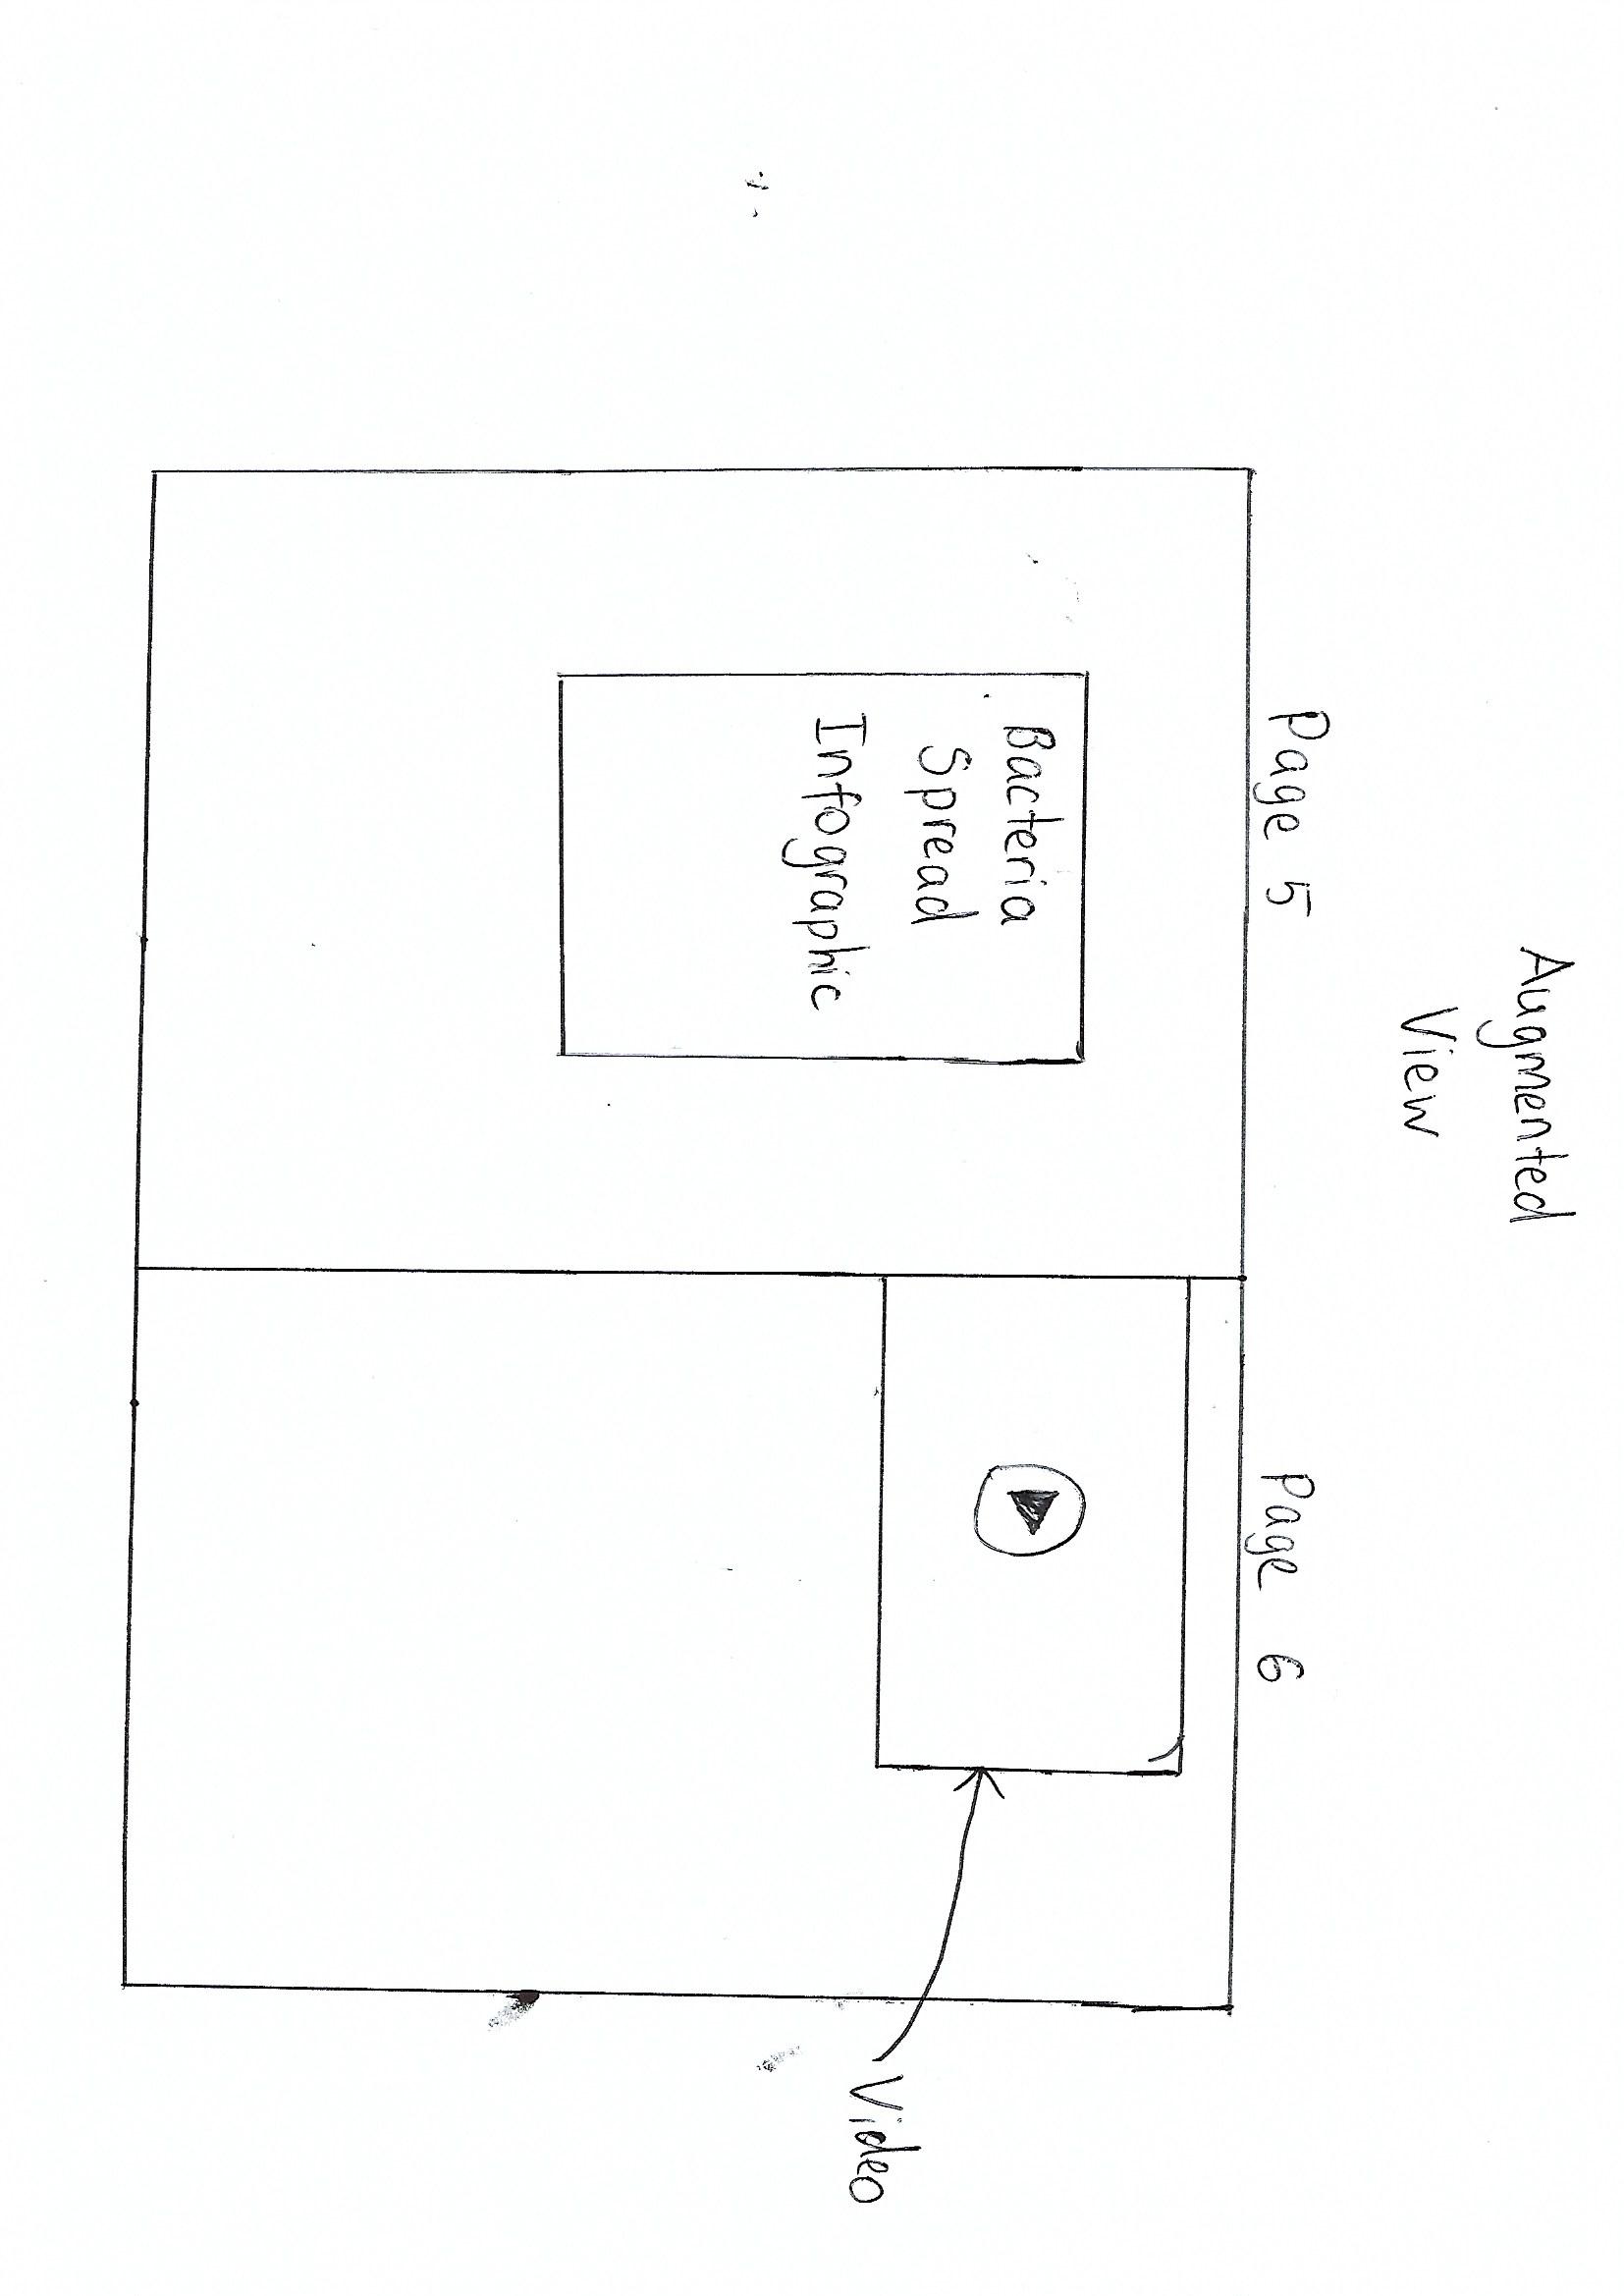 Augmented
View
Page 5
Page 6
Bacteria
Spread
Infographic
Video